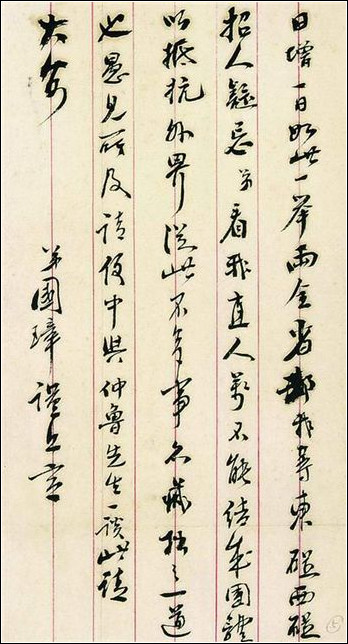 日增一日如此一舉兩全省却我等東碰西碰
招人疑忌弟看我直人萬不能結成團體
以抵抗外界從此不多事亦藏拙之一道
也愚見所及請便中與仲魯先生一談此請
大安
弟國璋謹上言